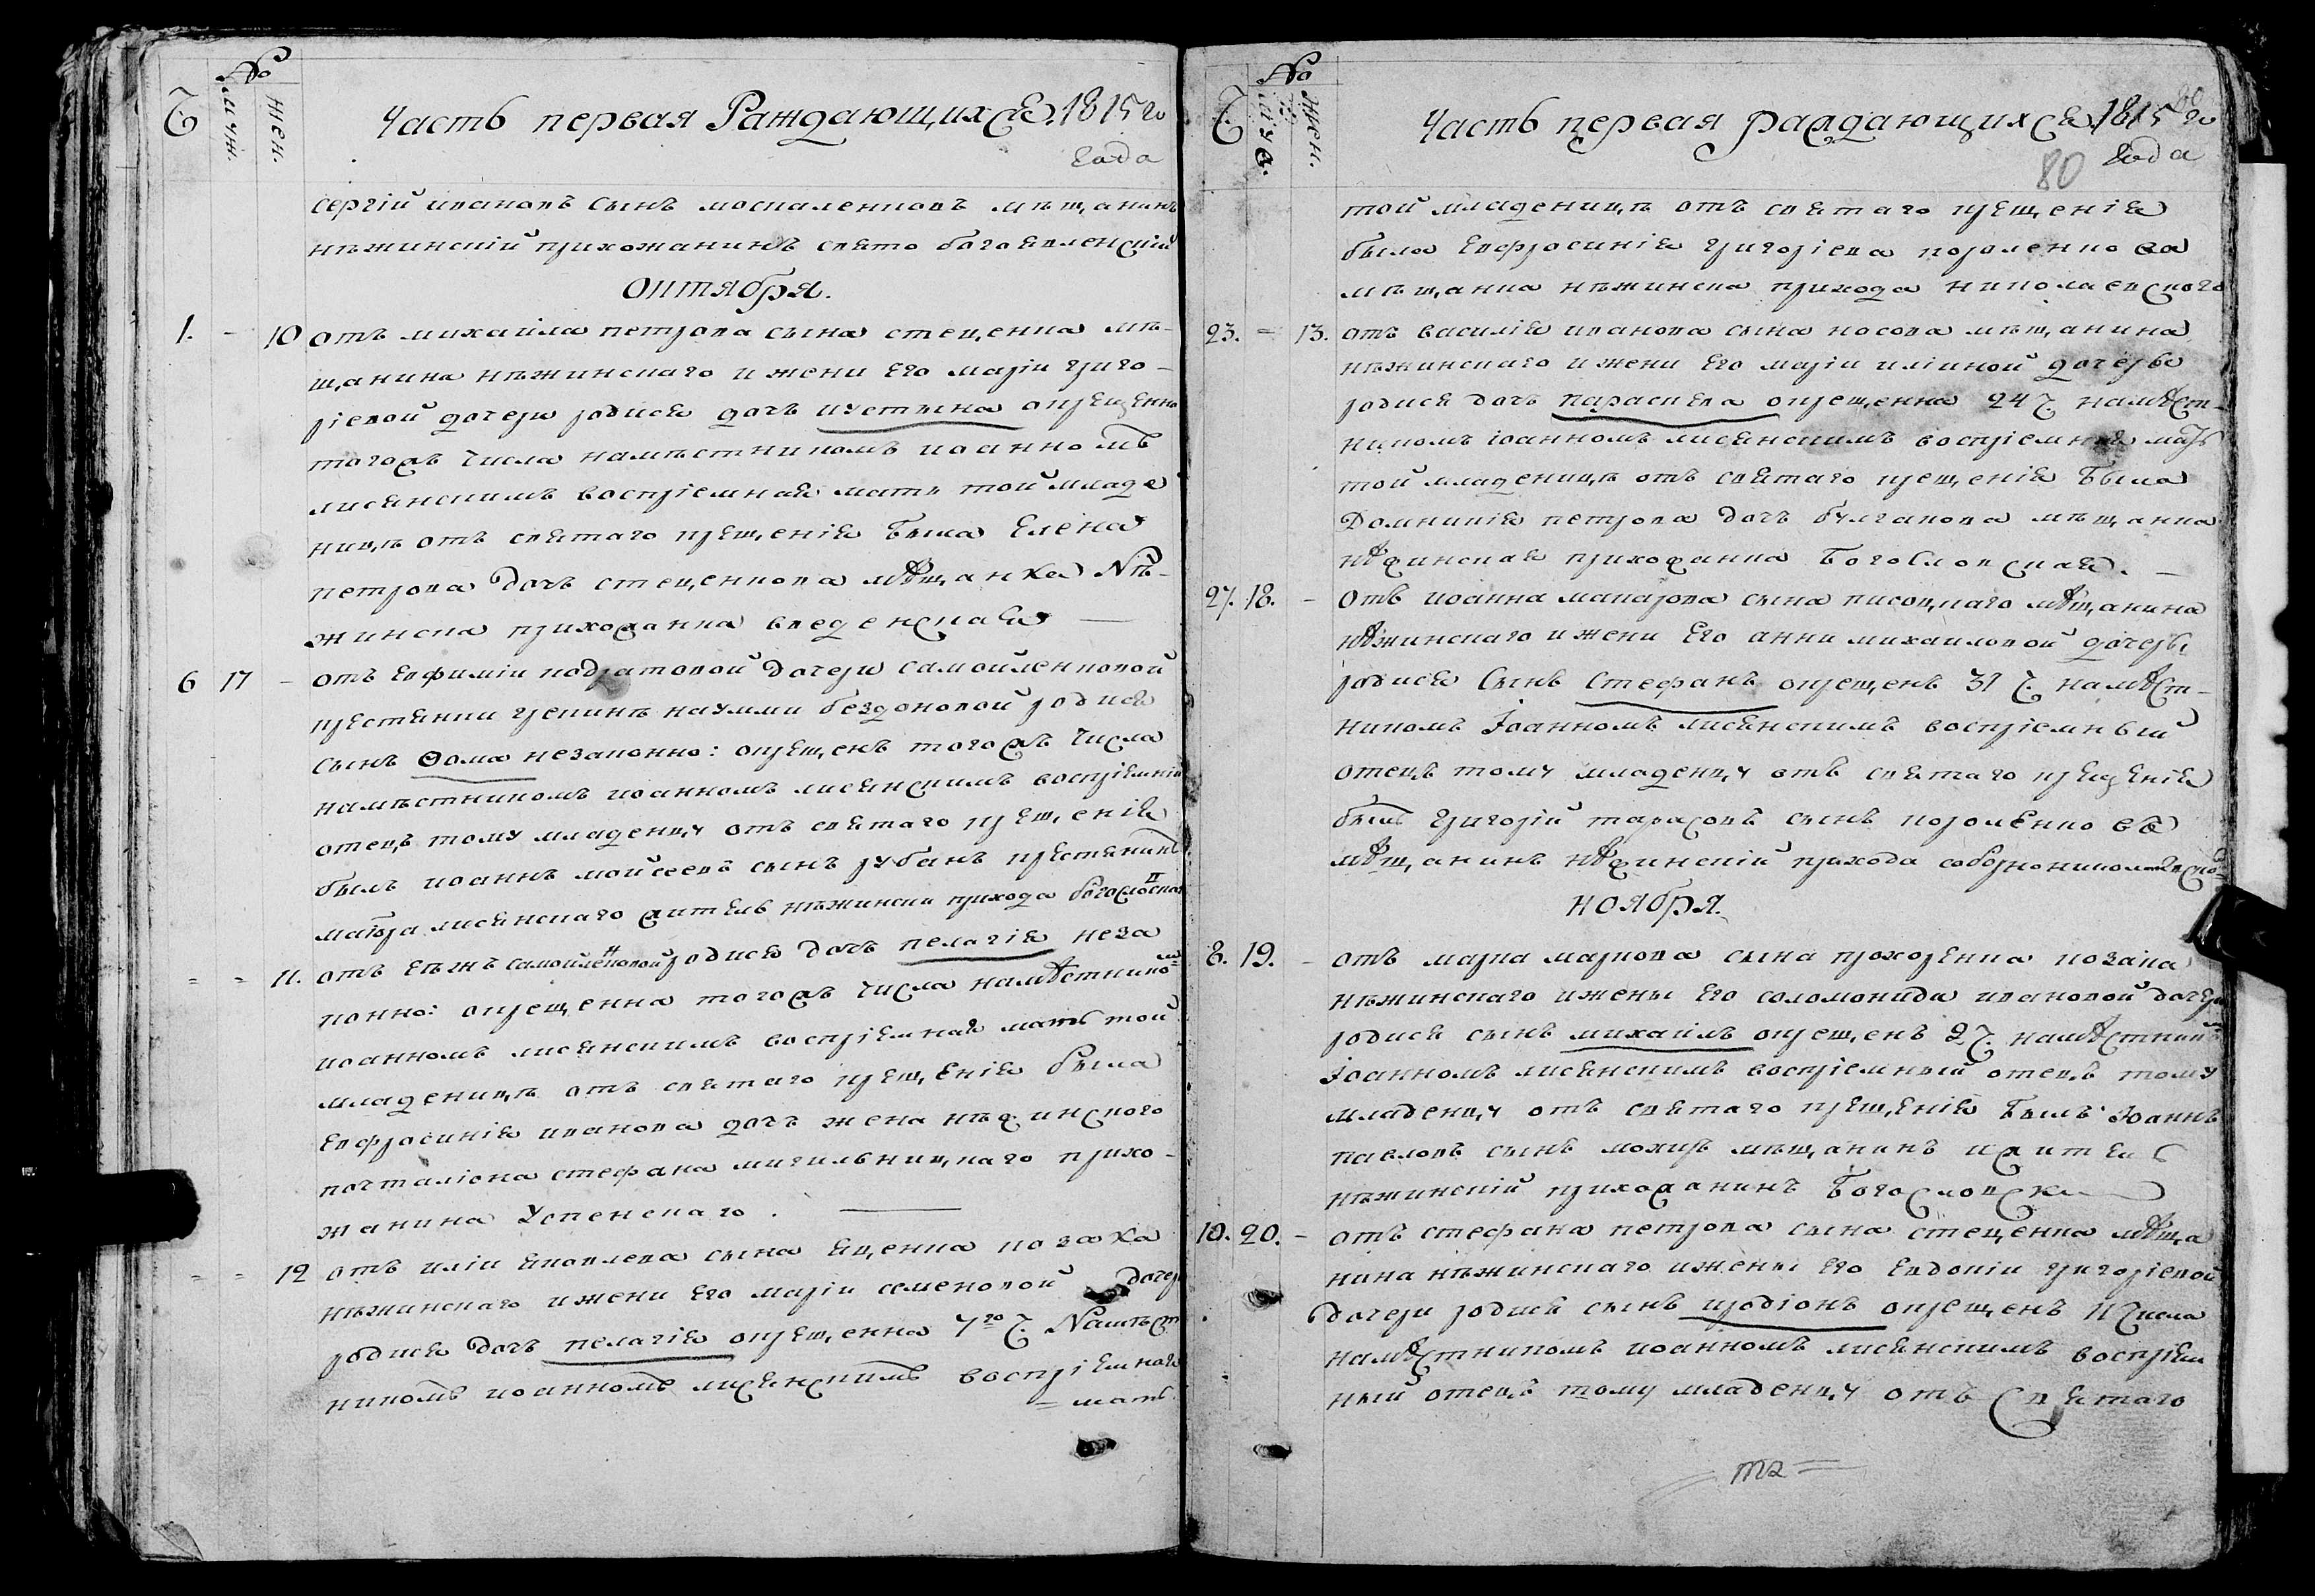 №
Ч муж. жен.
Часть первая Раждающихся. 1815го
года
сергій ивановъ сынъ москаленковъ мѣщанинъ
нѣжинскій прихожанинъ свято богоявленскій
Октября.
1. - 10 отъ михаила петрова сына стеценка мѣ-
щанина нѣжинскаго и жени его маріи григо-
ріевой дочери родися дочь иустина окрещенна
тогожъ числа намѣстникомъ иоанномъ
лисянскимъ воспріемная мать той младе
ницѣ отъ святаго крещенія была Елена
петрова дочь стеценкова мѣщанка Нѣ-
жинска прихожанка введенская —
6 17 - отъ евфиміи кодратовой дочери самойленковой
крестянки грекинѣ наумши бездоновой родися
сынъ Ѳома незаконно: окрещенъ тогожъ числа
намѣстникомъ иоанномъ лисянскимъ воспріемній
отецъ тому младенцу отъ святаго крещенія
былъ иоаннъ мойсеевъ сынъ рубанъ крестянинъ
маіора лисянскаго житель нѣжински прихода богословска
= = 11. отъ еяжъ самойленковой родися дочь пелагія неза
конно: окрещенна тогожъ числа намѣстникомъ
иоанномъ лисянскимъ воспріемная мать той
младеницѣ отъ святаго крещенія была
евфросинія иванова дочь жена нѣжинского
почталіона стефана мигильницкаго прихо-
жанина Успенскаго. —
= = 12 отъ иліи яковлева сына яценка козака
нѣжинскаго и жени его маріи семеновой дочер
родися дочь пелагія окрещенна 7го Ч. Намѣст
никомъ иоанномъ лисянскимъ воспріемная
= мать.
№
Ч муж. жен.
Часть первая раждающихся 1815го
80 года
той младеницѣ отъ святаго крещенія
была Евфросинія григоріева короленкова
мѣщанка нѣжинска прихода николаевского
23. = 13. отъ василія иванова сына носова мѣщанина
нѣжинскаго и жени его маріи иліиной дочерѣ
родися дочь параскева окрещенна 24 Ч. намѣст-
никомъ іоанномъ лисянскимъ воспріемная мать
той младеницѣ отъ святаго крещенія была
Домникія петрова дочь булгакова мѣщанка
нѣжинская прихожанка Богословская. —
27. 18. - Отъ иоанна макарова сына писоцкаго мѣщанина
нѣжинскаго и жени его анни михаиловой дочеры
родися сынъ Стефанъ окрещенъ 31 Ч. намѣст-
никомъ Іоанномъ лисянскимъ воспріемный
отецъ тому младенцу отъ святаго крещенія
былъ григорій тарасовъ сынъ короленковъ
мѣщанинъ нѣжинскій прихода соборнониколаевско-
Ноября.
8. 19. - отъ марка маркова сына прохоренка козака
нѣжинскаго и жены его соломониди ивановой дочери
родися сынъ михаилъ окрещенъ 9 Ч. намѣстником
Іоанномъ лисянскимъ воспріемный отецъ тому
младенцу отъ святаго крещенія былъ Іоаннъ
павловъ сынъ мохиръ мѣщанинъ и житель
нѣжинскій прихожанинъ Богословски
10. 20. - отъ стефана петрова сына стеценка мѣща
нина нѣжинскаго и жены его Евдокіи григоріевой
Дочери родися сынъ иродіонъ окрещенъ 11 числа
намѣстникомъ иоанномъ лисянскимъ воспріем
ный отецъ тому младенцу отъ Святаго